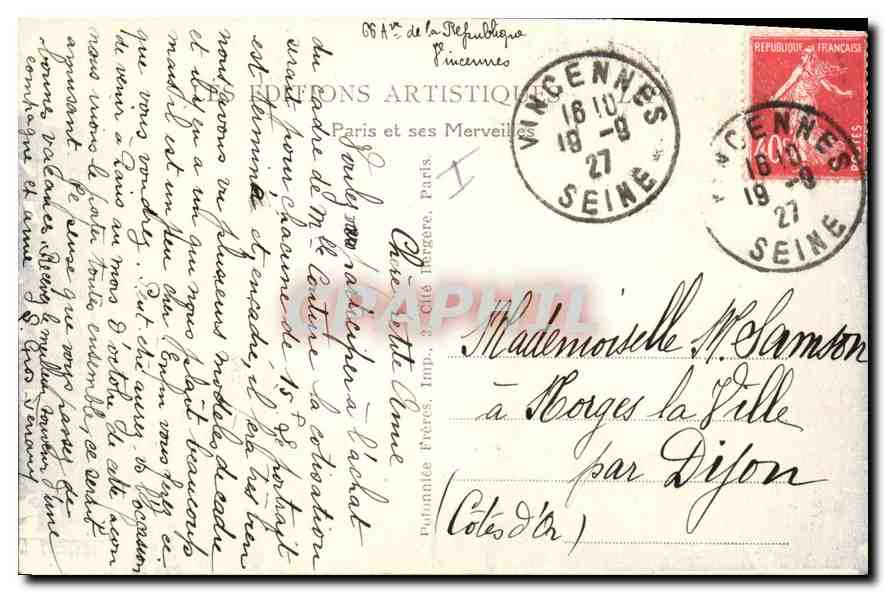 66 Ave de la République
Vincennes
EDITIONS ARTISTIQUES L
Paris et ses Merveilles
Chère petite Amie
Voulez vous participer à l'achat
du cadre de Mlle Couture la cotisation
serait pour chacune de 15f Le portrait
est terminé et encadré, il sera très bien
nous avons vu plusieurs modèles de cadre
et il y en a un qui nous plait beaucoup
mais il est un peu cher Enfin vous ferez ce
que vous voudrez. Peut être aurez vs l'occasion
de venir à Paris au mois d'octobre de cette façon
nous irions le porter toutes ensemble, ce serait
amusant Je pense que vous passez de
bonnes vacances. Recevez le meilleur souvenir d'une
compagne et amie
Potonniée Frères, Imp., 3, Cité Bergère, Paris.
VINCENNES
16 10
19 -9
27
SEINE
REPUBLIQUE FRANÇAISE
40c
POSTES
VINCENNES
16 10
19 -9
27
SEINE
CPAPHIL
Mademoiselle M. Samson
à Norges la Ville
par Dijon
(Côtes d'Or)